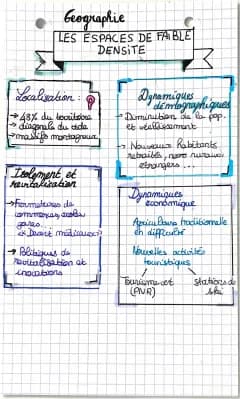 Géographie
LES ESPACES DE FAIBLE
DENSITÉ
Localisation :
→ 48% du territoire
→ diagonale du vide
→ massifs montagneux
Dynamiques
démographiques
→ Diminution de la pop.
et vieillissement
→ Nouveaux habitants
retraités, néo ruraux
étrangers ...
Isolement et
revitalisation
→ Fermetures de
commerces, écoles
gares...
"Désert médicaux"
→ Politiques de
revitalisation et
innovations
Dynamiques
économique
Agriculture traditionnelle
en difficulté
Nouvelles activités
touristiques
Tourisme vert
(PNR)
Stations de
ski